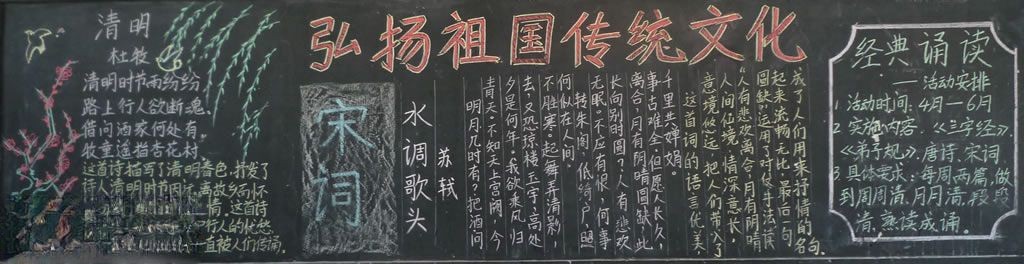 弘扬祖国传统文化
清明
杜牧
清明时节雨纷纷
路上行人欲断魂
借问酒家何处有
牧童遥指杏花村
这首诗描写了清明春色,打发了
诗人清明时节因远离故乡而怀
情,这首诗
行人的忧愁
一直被人们传诵。
宋词
水调歌头
苏轼
明月几时有?把酒问
青天。不知天上宫阙,今
夕是何年。我欲乘风归
去,又恐琼楼玉宇,高处
不胜寒。起舞弄清影,
何似在人间。
转朱阁,低绮户,照
无眠。不应有恨,何事
长向别时圆?人有悲欢
离合,月有阴晴圆缺,此
事古难全。但愿人长久,
千里共婵娟。
这首词的语言优美,
意境悠远,把人们带入了
人间仙境,情深意长。
“人有悲欢离合,月有阴晴
圆缺”运用了对仗手法,读
起来流畅无比,最后一句
成了人们用来抒情的名句。
经典诵读
——活动安排
1.活动时间:4月—6月
2.实施内容:《三字经》
《弟子规》、唐诗、宋词
3.具体要求:每周两篇,做
到周周清,月月清,段段
清,熟读成诵。